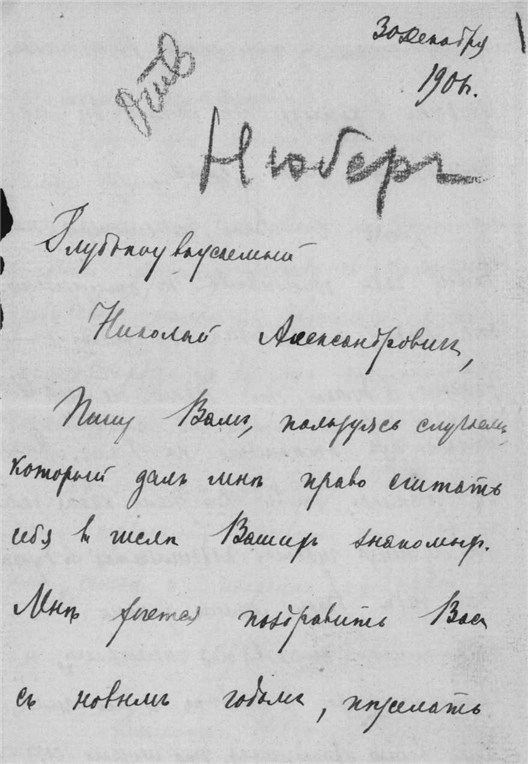 30 декабря
1906 г.
Отв
Нюбергъ
Глубокоуважаемый
Николай Александровичъ,
Пишу Вамъ, пользуясь случаемъ,
который далъ мнѣ право считать
себя въ числѣ Вашихъ знакомыхъ.
Мнѣ хочется поздравить Васъ
съ новымъ годомъ, пожелать